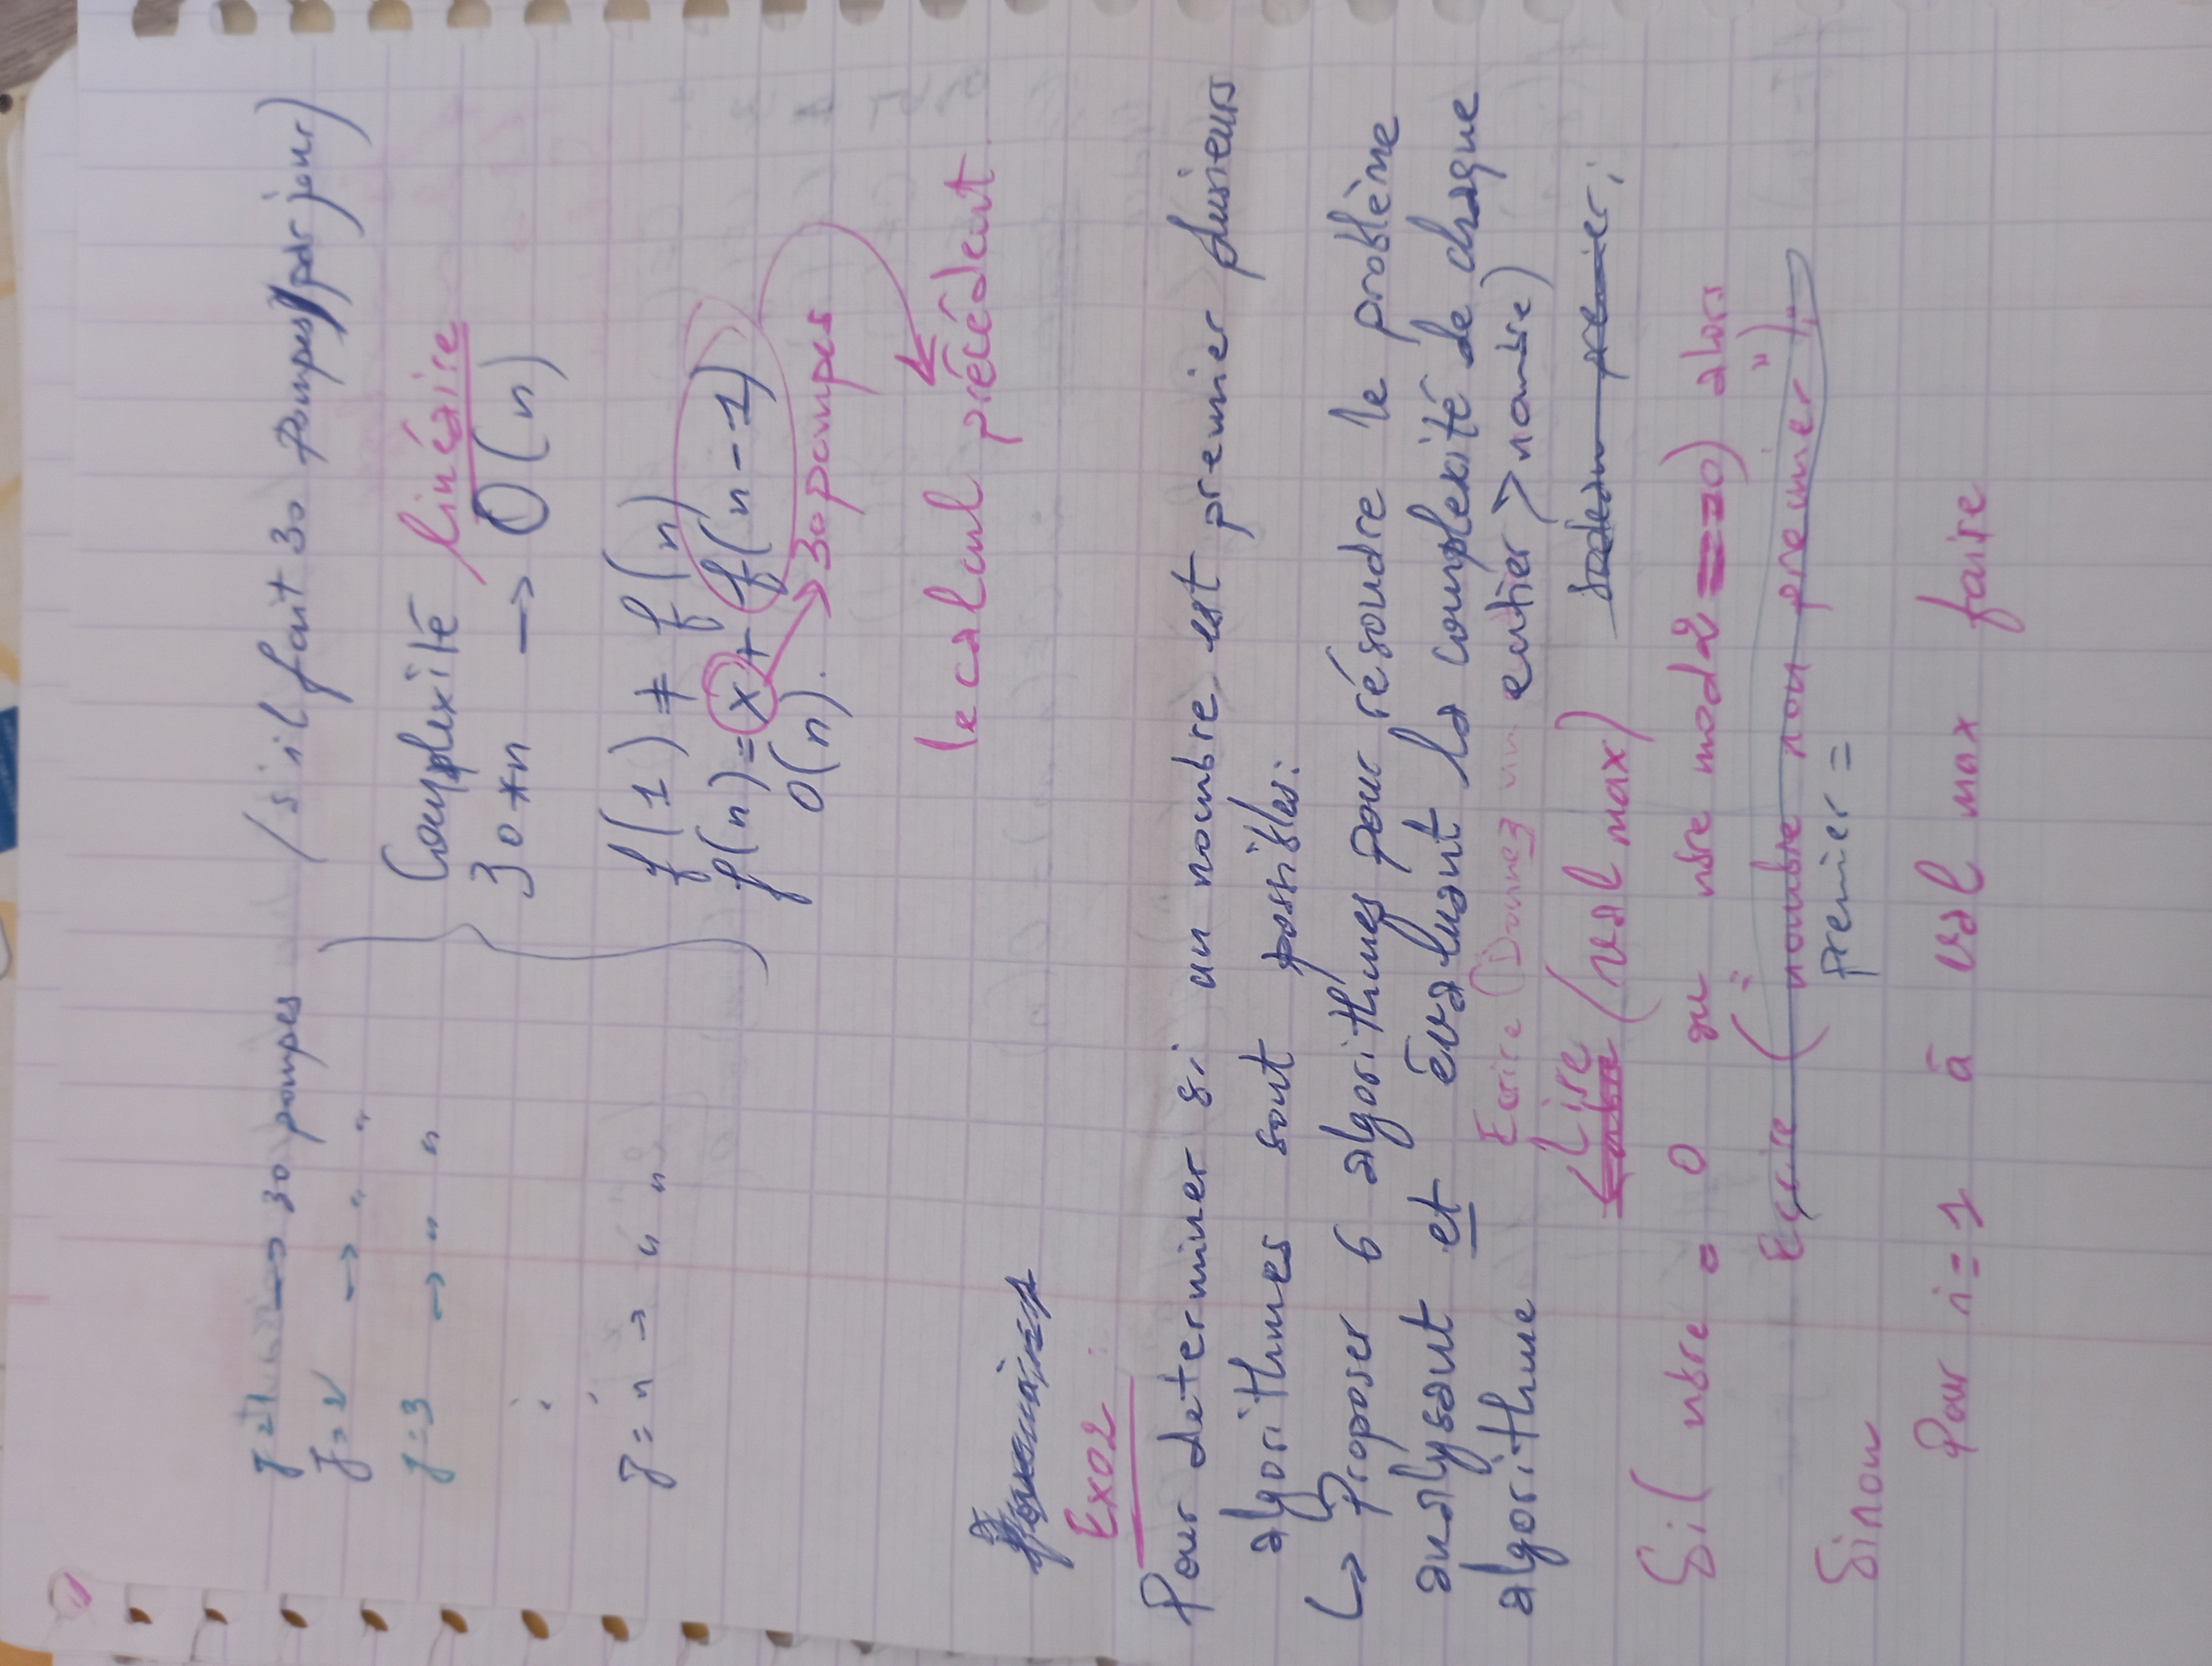 J=1 → 30 pompes / s'il fait 30 pompes par jour)
J=2 → " "
J=3 → " " Complexité linéaire
30*n → O(n)
J=n → " " f(1) ≠ f(n)
f(n)=x+f(n-1)
O(n). → 30 pompes
le calcul précédent
Exo2:
Pour determiner si un nombre est premier plusieurs
algorithmes sont possibles:
↳ Proposer 6 algorithmes pour résoudre le problème
analysant et évaluant la complexité de chaque
algorithme
Ecrire (Donnez un entier > nombre)
Lire (val max)
Si( nbre = 0 ou nbre mod 2 == 0) alors
Ecrire ("nombre non premier");
premier =
Sinon
Pour i=1 à val max faire